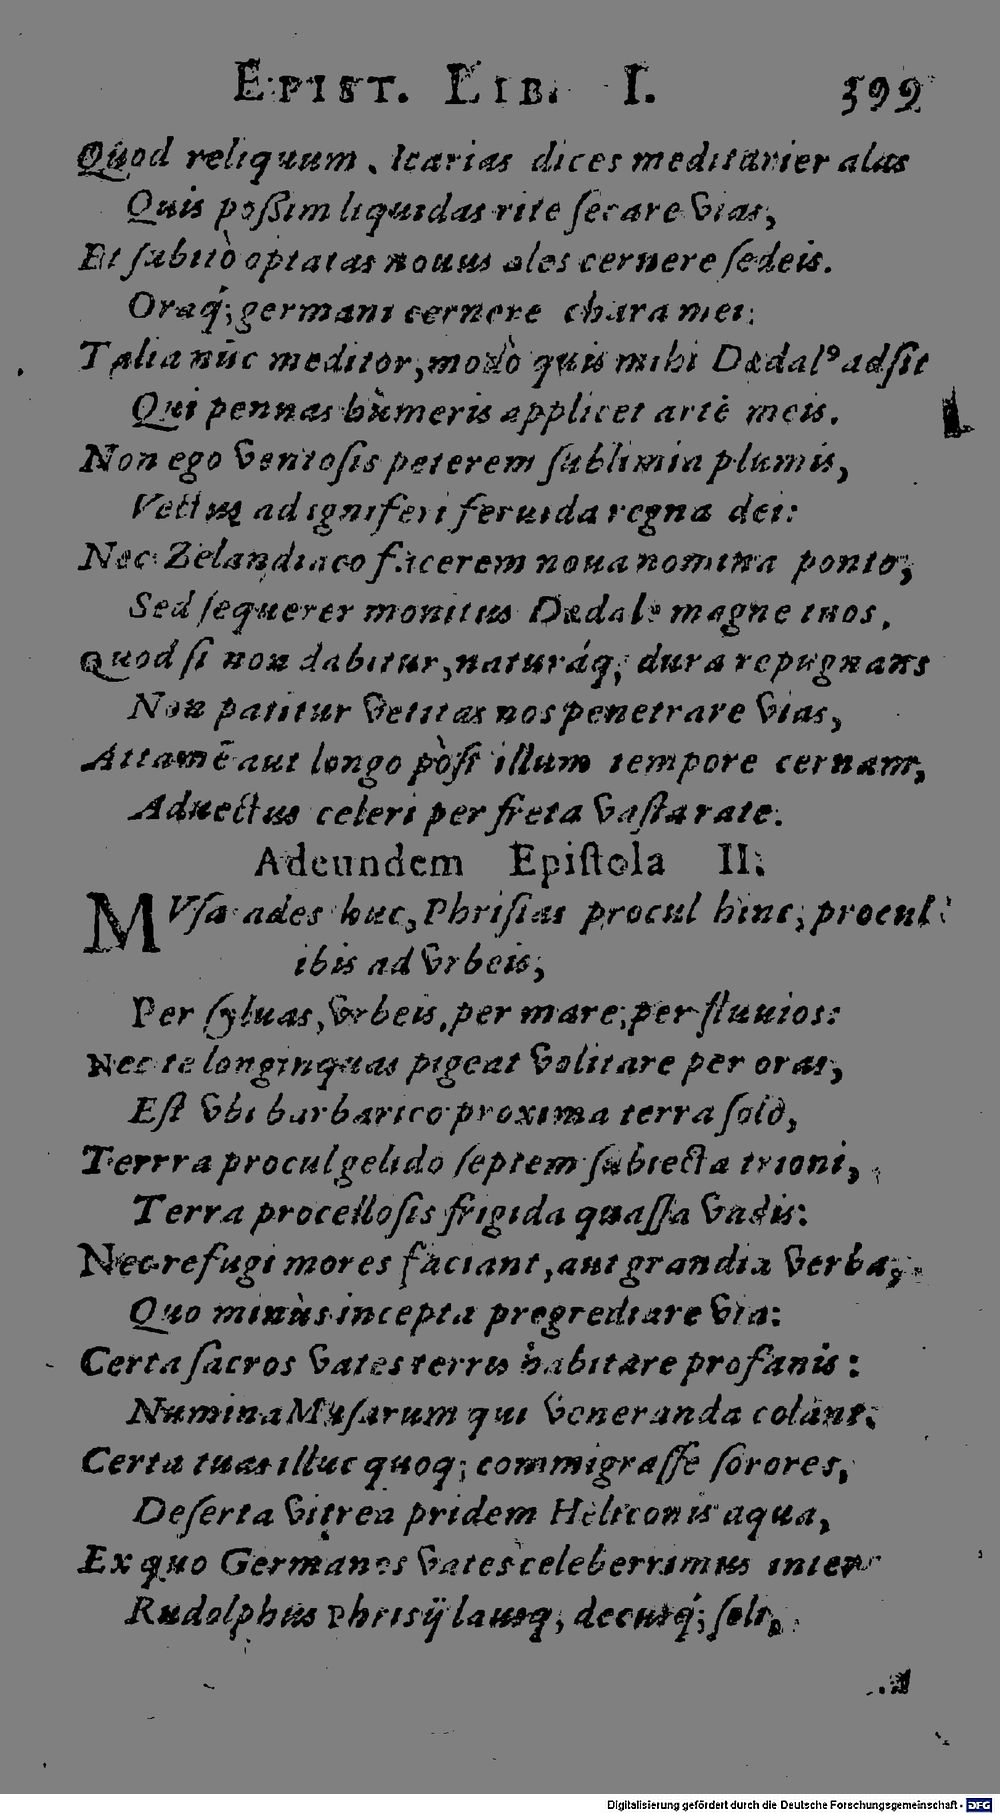 EPIST. LIB. I. 399
Quod reliquum. Icarias dices meditarier alas
Quis poßim liquidas rite ſecare vias,
Et ſubitò optatas nouus ales cernere ſedeis.
Oraq́; germani cernere chara mei:
Talia nūc meditor, modò quis mihi Dædalꝰ adſit
Qui pennas humeris applicet artè meis.
Non ego ventoſis peterem ſublimia plumis,
Vectus ad igniferi feruida regna dei:
Nec Zelandiaco facerem noua nomina ponto,
Sed ſequerer monitus Dædale magne tuos.
Quod ſi non dabitur, naturáq; dura repugnans
Non patitur vetitas nos penetrare vias,
Attamē aut longo pòſt illum tempore cernam,
Aduectus celeri per freta vaſta rate.
Ad eundem Epiſtola II.
MVſa ades huc, Phriſias procul hinc, procul
ibis ad vrbeis,
Per ſyluas, vrbeis, per mare, per fluuios:
Nec te longinquas pigeat volitare per oras,
Eſt vbi barbarico proxima terra ſolo,
Terrra procul gelido ſeptem ſubiecta trioni,
Terra procelloſis frigida quaſſa vadis:
Nec refugi mores faciant, aut grandia verba,
Quo minùs incepta progrediare via:
Certa ſacros vates terris habitare profanis:
Numina Muſarum qui veneranda colant.
Certa tuas illuc quoq; commigraſſe ſorores,
Deſerta vitrea pridem Heliconis aqua,
Ex quo Germanos vates celeberrimus inter
Rudolphus Phrisÿ lausq, decusq́; ſoli,
Digitalisierung gefördert durch die Deutsche Forschungsgemeinschaft - DFG